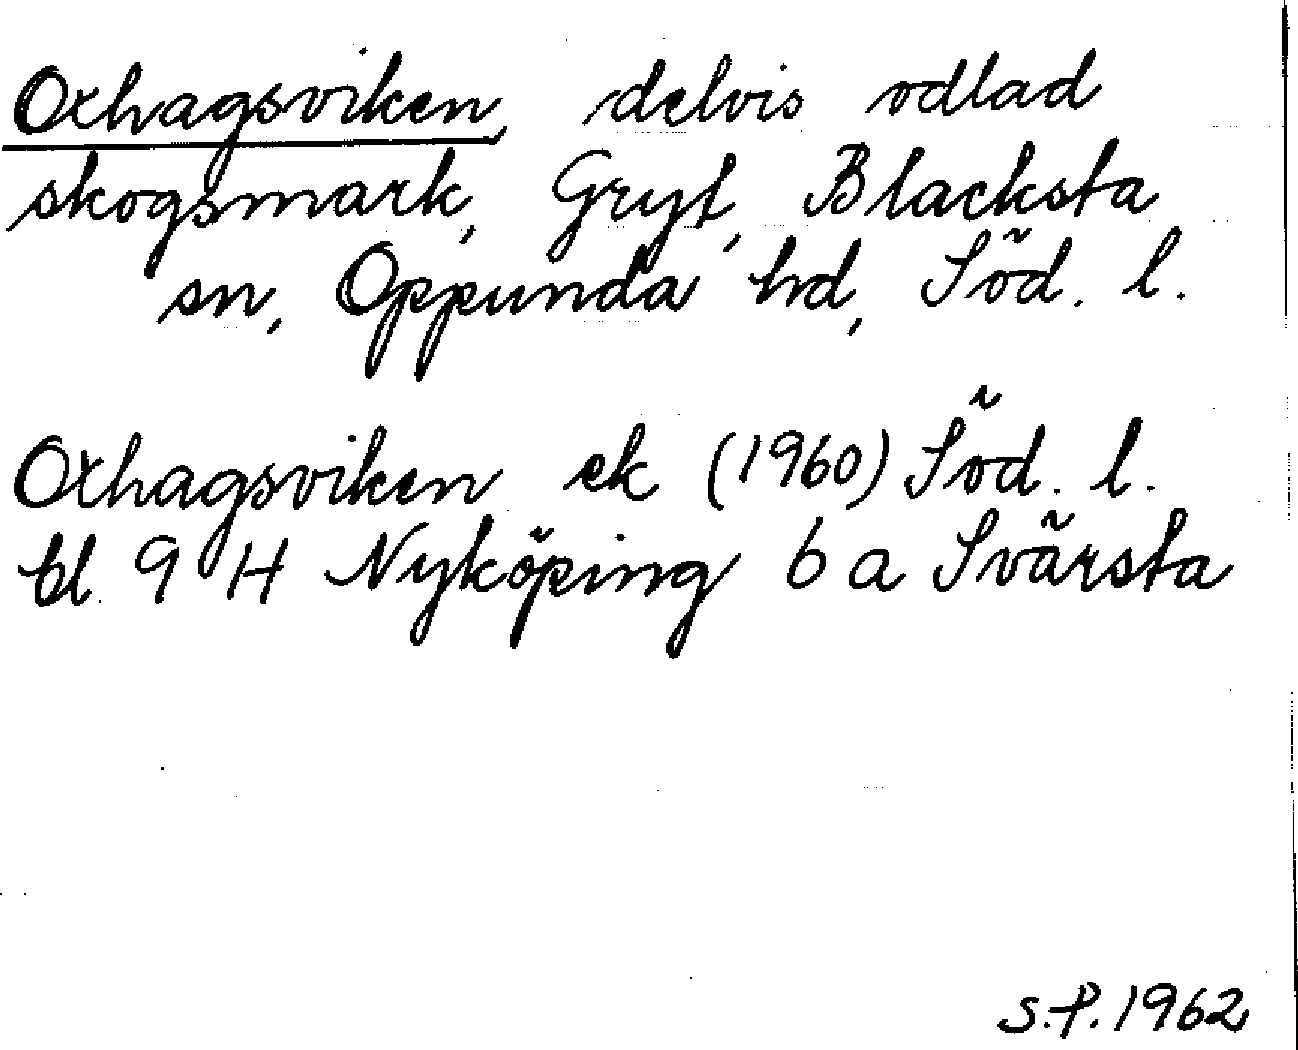 Oxhagsviken, delvis odlad
skogsmark, Gryt, Blacksta
sn, Oppunda hd, Söd. l.
Oxhagsviken ek (1960) Söd. l.
bl. 9 H Nyköping 6 a Svärsta
S.P. 1962